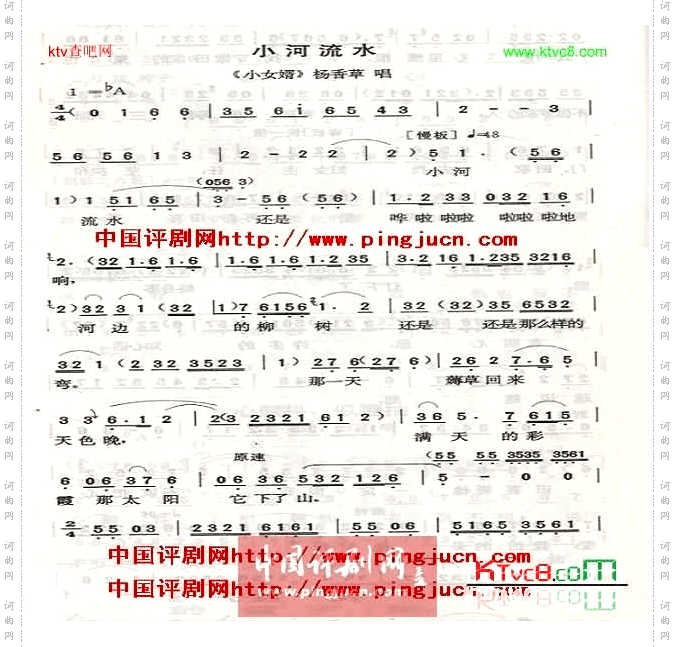 ktv查吧网
小河流水
www.ktvc8.com
《小女婿》杨香草 唱
1=♭A
4/4 ( 0 1 6 6 | 3 5 6 i 6 5 4 3 | 2 - - 3 |
[慢板] ♩=48
5 6 5 6 1 3 | 2 - 2 2 | 2 ) 5 1 . ( 5 6 |
小河
(056 3)
1 ) 1 51 65 | 3 - 56 (56) | 1 . 2 33 032 16 |
流水 还是 哗啦啦啦 啦啦啦地
中国评剧网http://www.pingjucn.com
2 . (32 1·6 1·6 | 1·6 1·6 1·2 35 | 3·2 16 1·235 3216 |
响,
2) 32 3 1 (32 | 1)7 6156 1 . 2 | 32 (32)35 6532 |
河边 的柳 树 还是 还是那么样的
32 1 (2 32 3523 | 1) 27 6 (27 6) | 26 2 7·6 5 |
弯。 那一天 薅草回来
3 3 6·1 2 | 2(3 2321 61 2) | 36 5 . 7 615 |
天色晚, 满天的彩
原速
(55 55 3535 3561
6 06 37 6 | 06 36 53 2 | 5 - 0 0 |
霞 那太阳 它下了山。
2/4 55 03 | 2321 6161 | 55 06 | 5165 3561 |
中国评剧网http://www.pingjucn.com
中国评剧网
中国评剧网http://www.pingjucn.com
KTvc8.com
词曲网